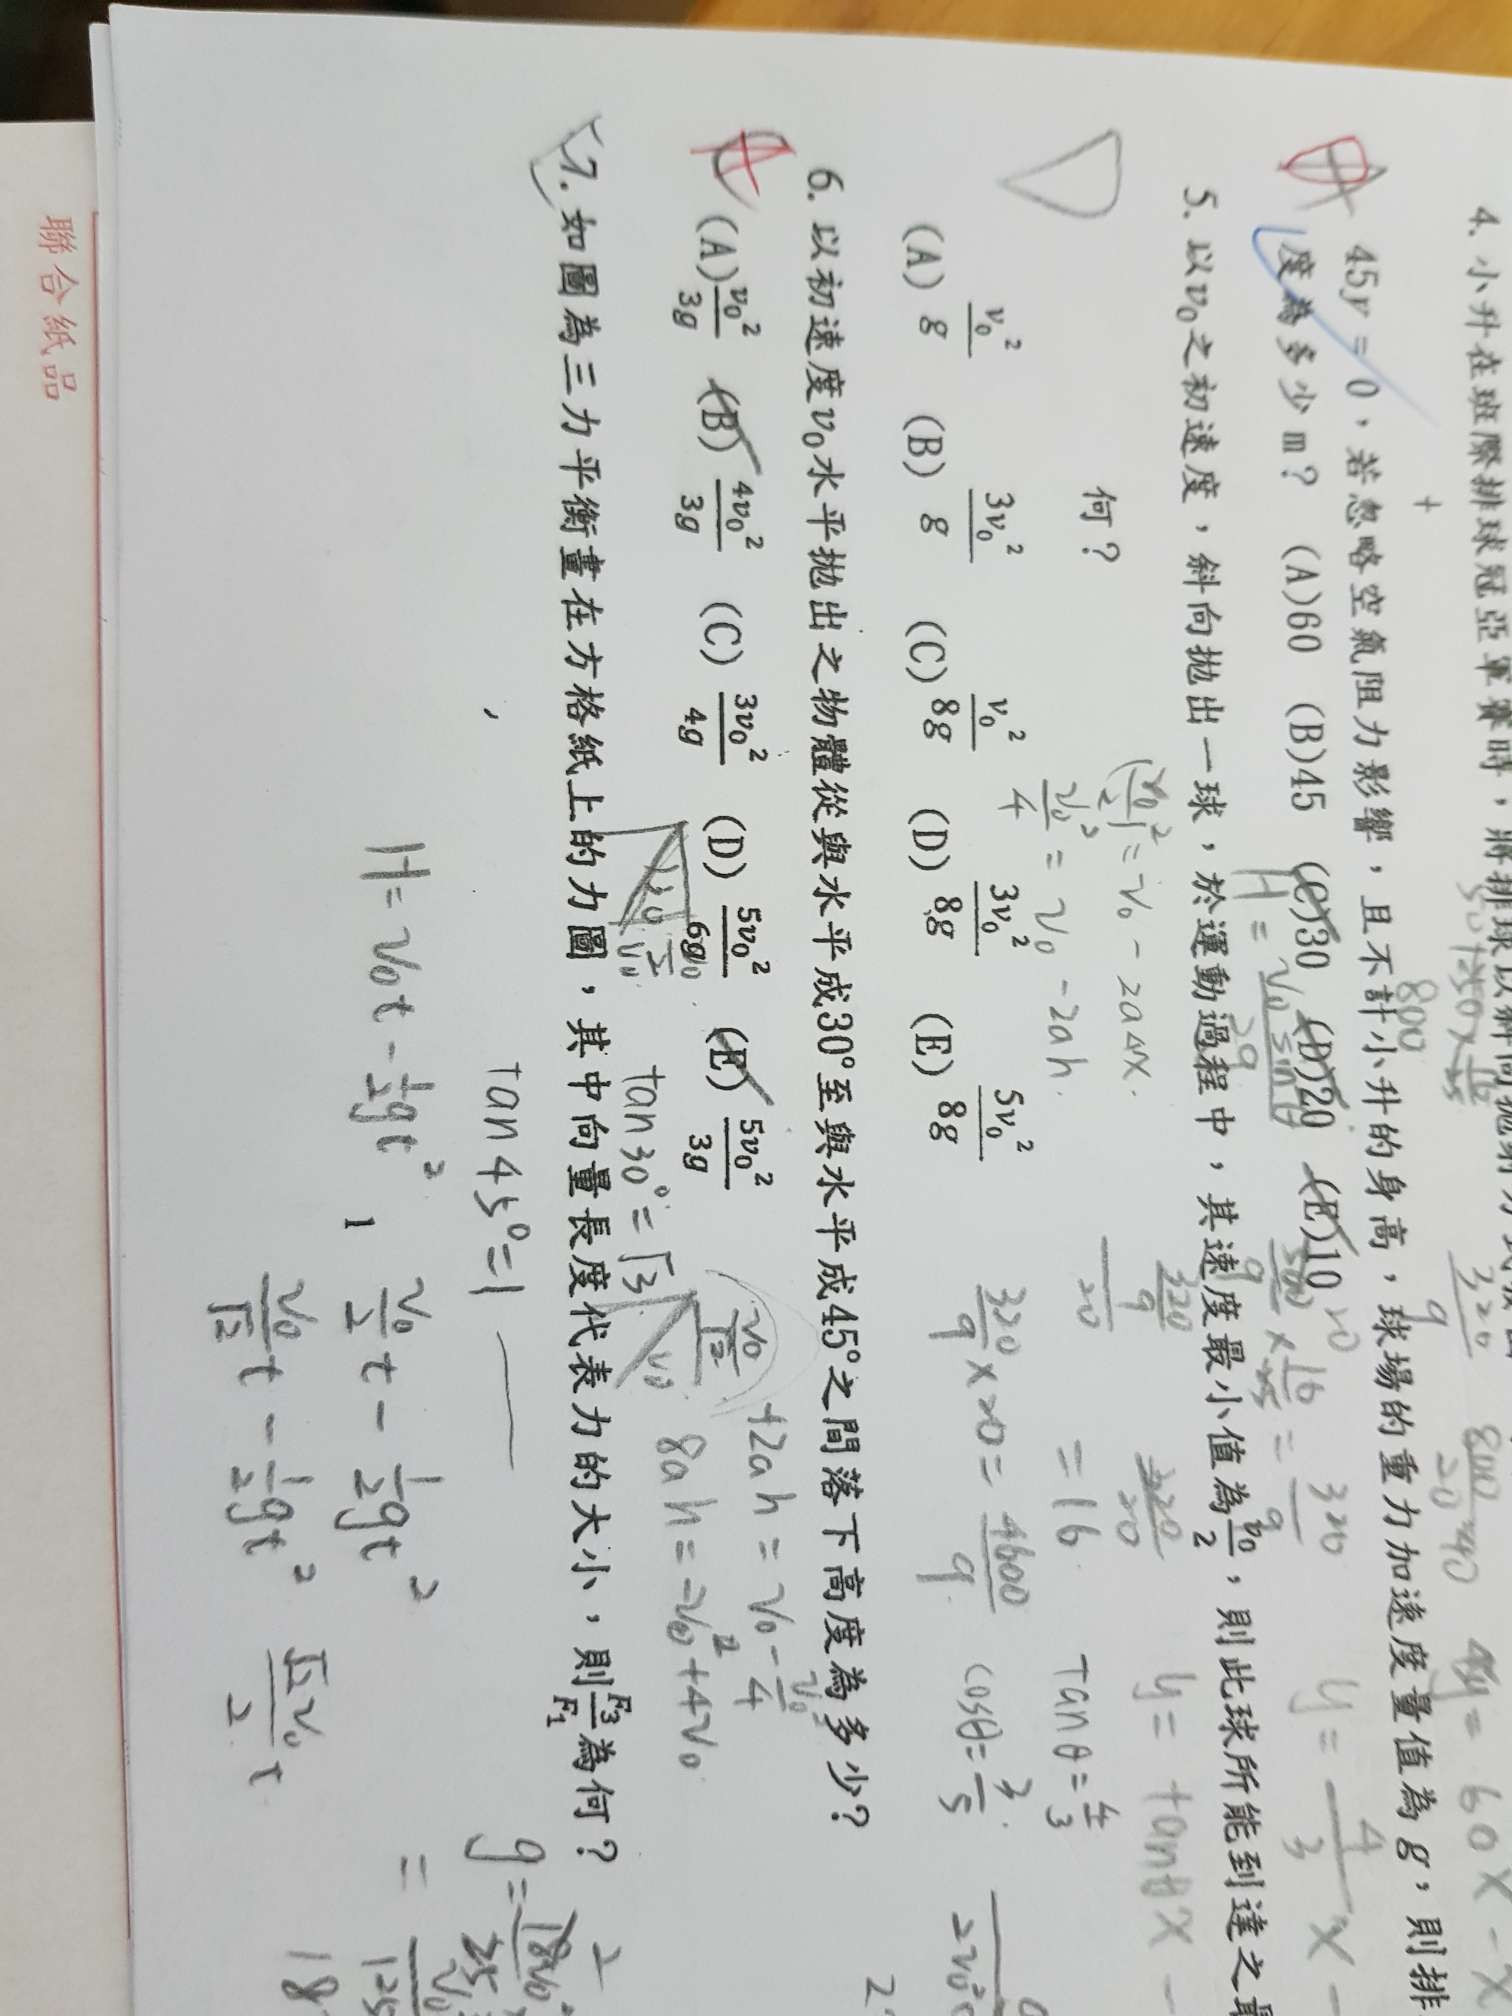 4. 小升在班際排球冠亞軍賽時，將排球以斜向拋射方式
45y = 0，若忽略空氣阻力影響，且不計小升的身高，球場的重力加速度量值為g，則排
度為多少m？ (A)60 (B)45 (C)30 (D)20 (E)10
5. 以v₀之初速度，斜向拋出一球，於運動過程中，其速度最小值為v₀/2，則此球所能到達之最
何？
(A) v₀²/g (B) 3v₀²/g (C) v₀²/8g (D) 3v₀²/8g (E) 5v₀²/8g
6. 以初速度v₀水平拋出之物體從與水平成30°至與水平成45°之間落下高度為多少？
(A) v₀²/3g (B) 4v₀²/3g (C) 3v₀²/4g (D) 5v₀²/6g (E) 5v₀²/3g
7. 如圖為三力平衡畫在方格紙上的力圖，其中向量長度代表力的大小，則F₃/F₁為何？
800
320/9
(v₀/2)² = v₀ - 2aΔx.
v₀²/4 = v₀ - 2ah.
320/9 × 20 = 4600/9
= 16
tanθ = 4/3
cosθ = 3/5
y = 4/3 x -
y = tanθx -
tan30° = √3
tan45° = 1
v₀/√2
+2ah = v₀ - v₀/4
8ah = -v₀² + 4v₀
H = v₀t - 1/2 gt²
v₀/2 t - 1/2 gt²
v₀/√2 t - 1/2 gt²
√2v₀/2 t
聯合紙品